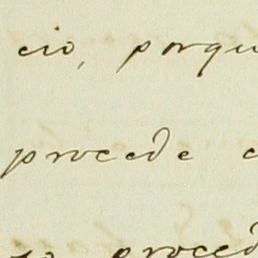 cio, porqu
procede c
so proced